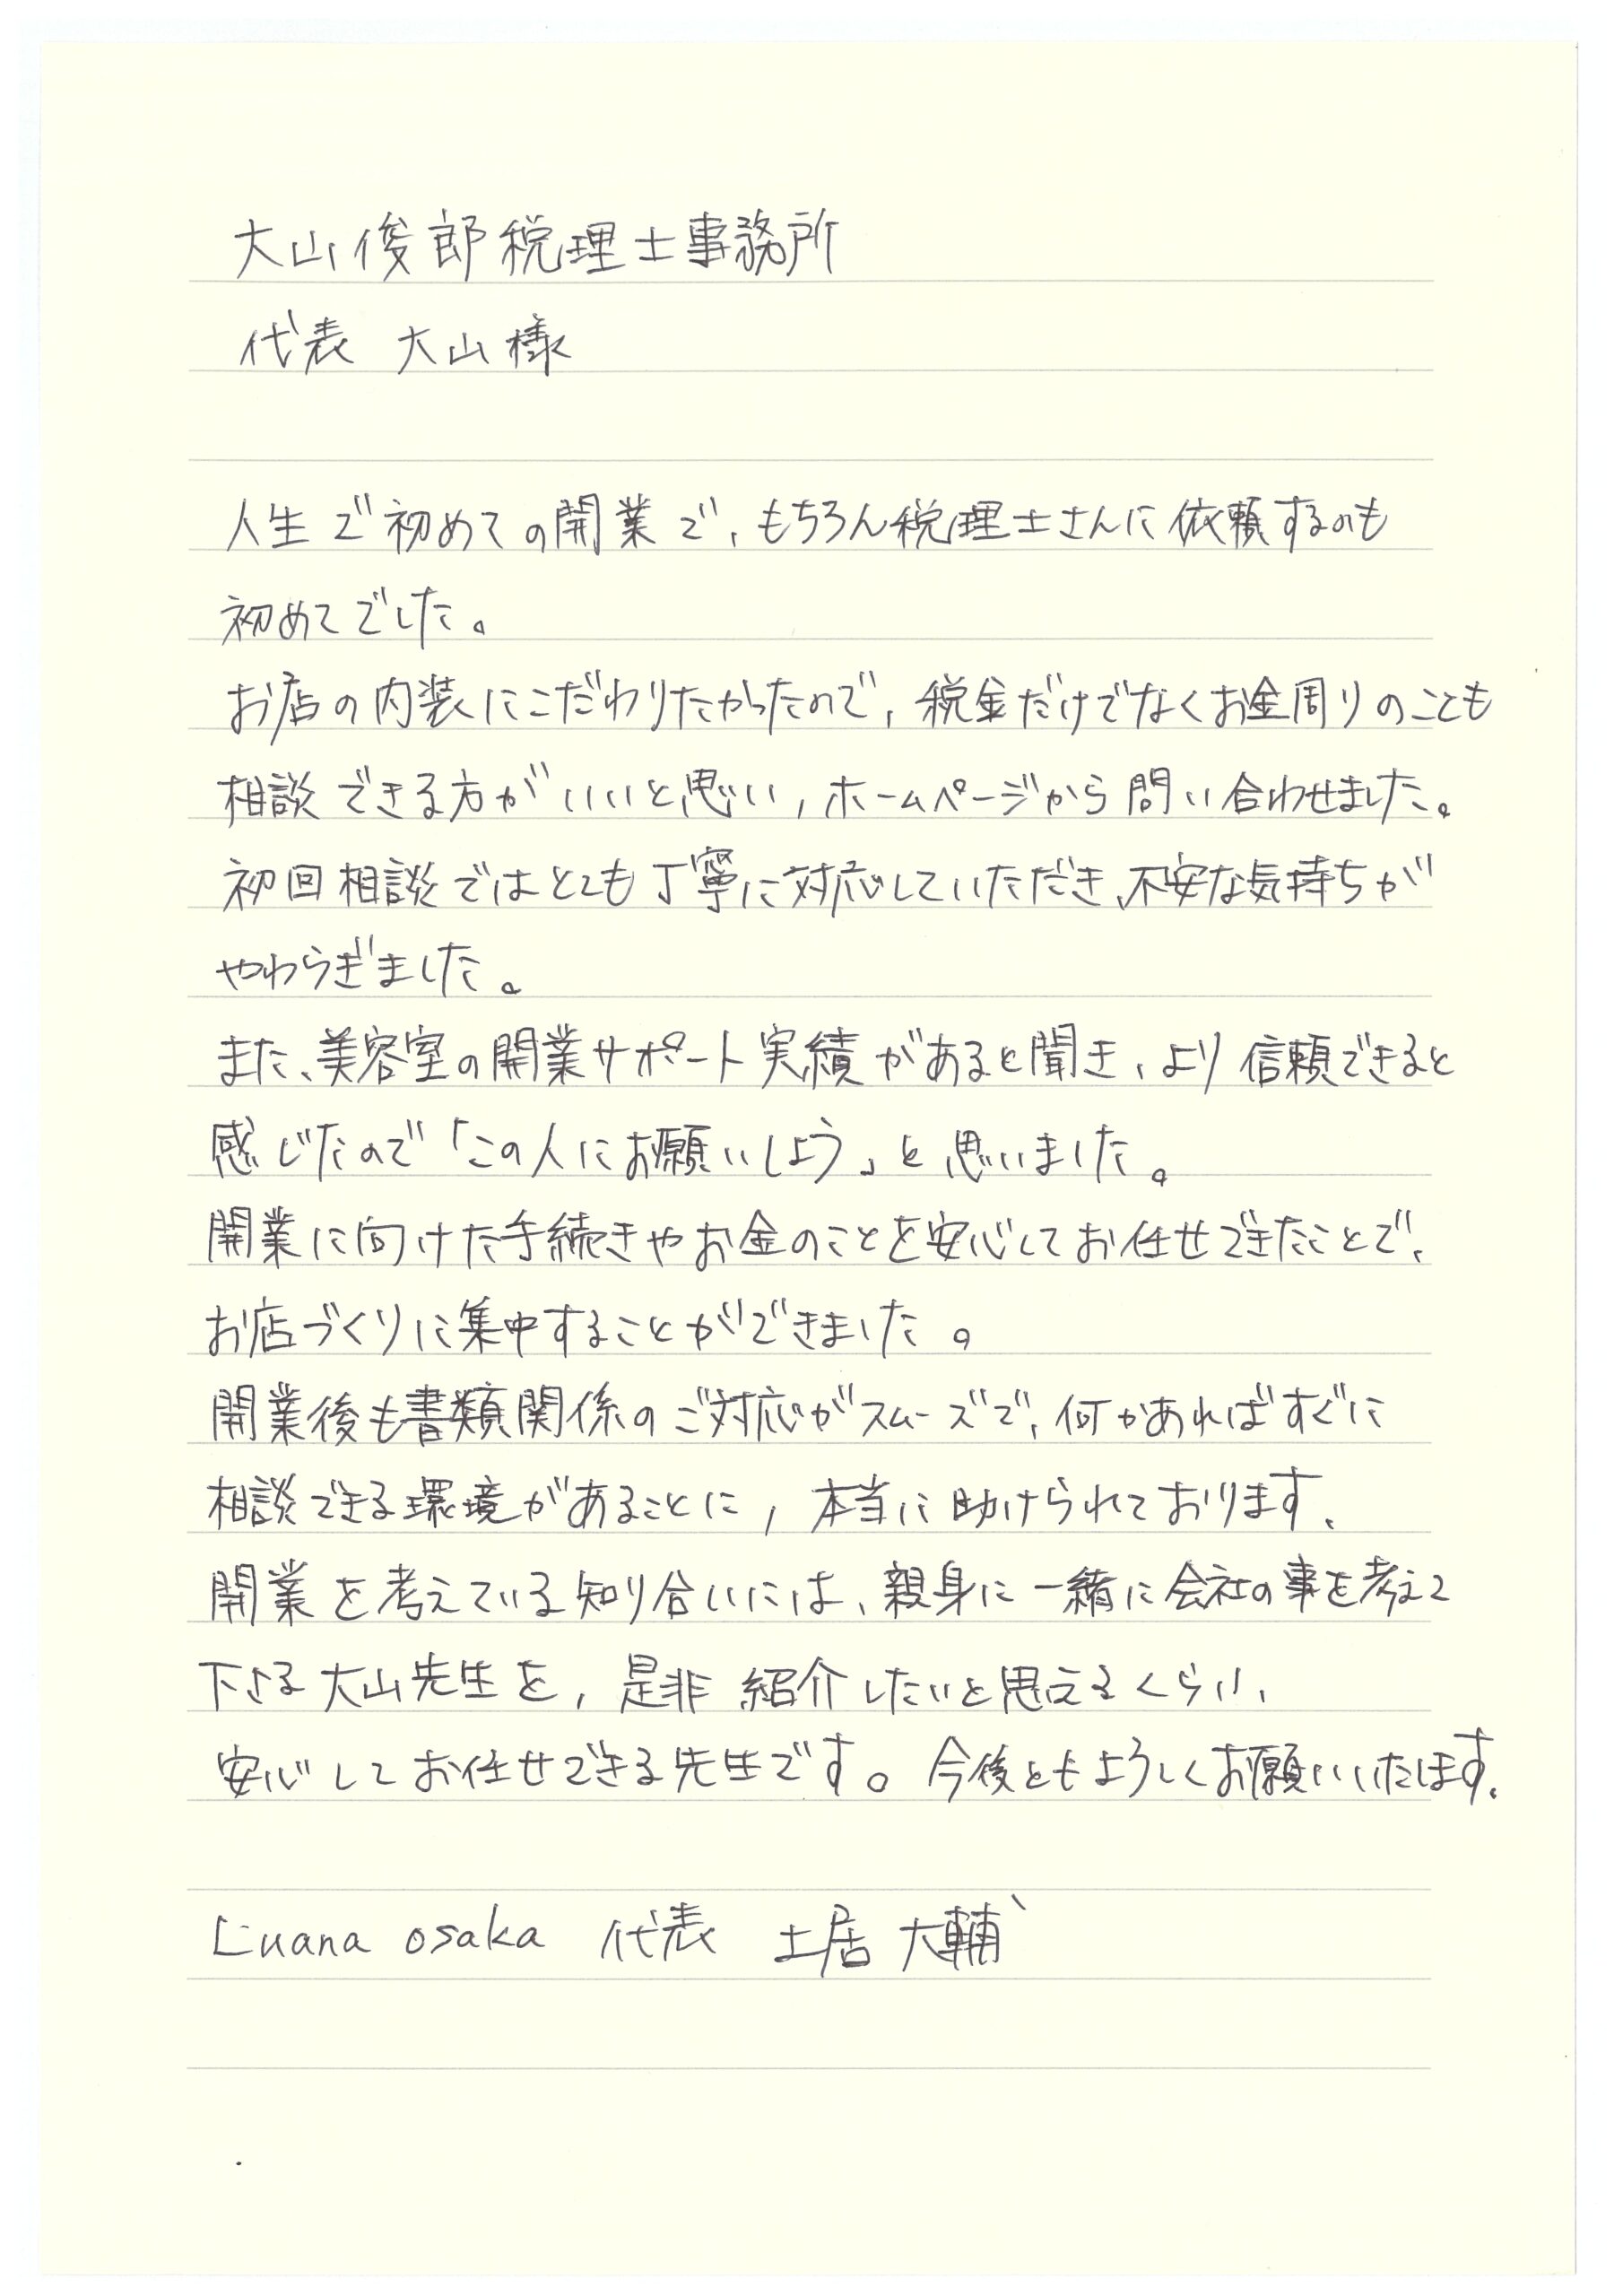 大山俊郎税理士事務所
代表 大山様
人生で初めての開業で、もちろん税理士さんに依頼するのも
初めてでした。
お店の内装にこだわりたかったので、税金だけでなくお金周りのことも
相談できる方がいいと思い、ホームページから問い合わせました。
初回相談ではとても丁寧に対応していただき、不安な気持ちが
やわらぎました。
また、美容室の開業サポート実績があると聞き、より信頼できると
感じたので「この人にお願いしよう」と思いました。
開業に向けた手続きやお金のことを安心してお任せできたことで、
お店づくりに集中することができました。
開業後も書類関係のご対応がスムーズで、何かあればすぐに
相談できる環境があることに、本当に助けられております。
開業を考えている知り合いには、親身に一緒に会社の事を考えて
下さる大山先生を、是非紹介したいと思えるくらい、
安心してお任せできる先生です。今後ともよろしくお願いいたします。
Luana osaka 代表 土居 大輔